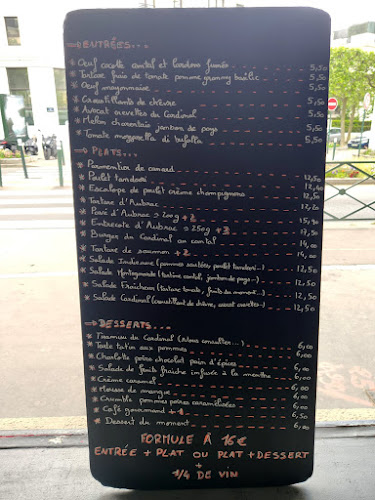 ENTRÉES...
* Oeuf cocotte cantal et lardons fumés 5,50
* Tartare frais de tomate pomme granny basilic 5,50
* Oeuf mayonnaise 5,50
* Croustillants de chèvre 5,50
* Avocat crevettes du Cardinal 5,50
* Melon charentais jambon de pays 5,50
* Tomate mozzarella di bufalla 5,50
PLATS...
* Parmentier de canard 12,50
* Poulet tandoori 12,50
* Escalope de poulet crème champignons 12,50
* Tartare d'Aubrac
* Pavé d'Aubrac ≥ 200g + 2 15,90
* Entrecote d'Aubrac ≥ 250g + 3 17,50
* Burger du Cardinal au cantal 14,00
* Tartare de saumon + 2 14,00
* Salade Indienne (pommes sautées, poulet tandoori...) 12,50
* Salade Montagnarde (tartine cantal, jambon de pays...) 12,50
* Salade Fraîcheur (tartare tomate, fruits du moment...) 12,50
* Salade Cardinal (croustillant de chèvre, avocat crevettes...) 12,50
DESSERTS...
* Tiramisu du Cardinal (Nous consulter...) 6,00
* Tarte tatin aux pommes 6,00
* Charlotte poire chocolat pain d'épices 6,00
* Salade de fruits fraiche infusée à la menthe 6,00
* Crème caramel 6,00
* Mousse de mangue 6,00
* Crumble pommes poires caramélisées 6,00
* Café gourmand + 1 6,50
* Dessert du moment 6,00
FORMULE À 16€
ENTRÉE + PLAT OU PLAT + DESSERT
+
1/4 DE VIN